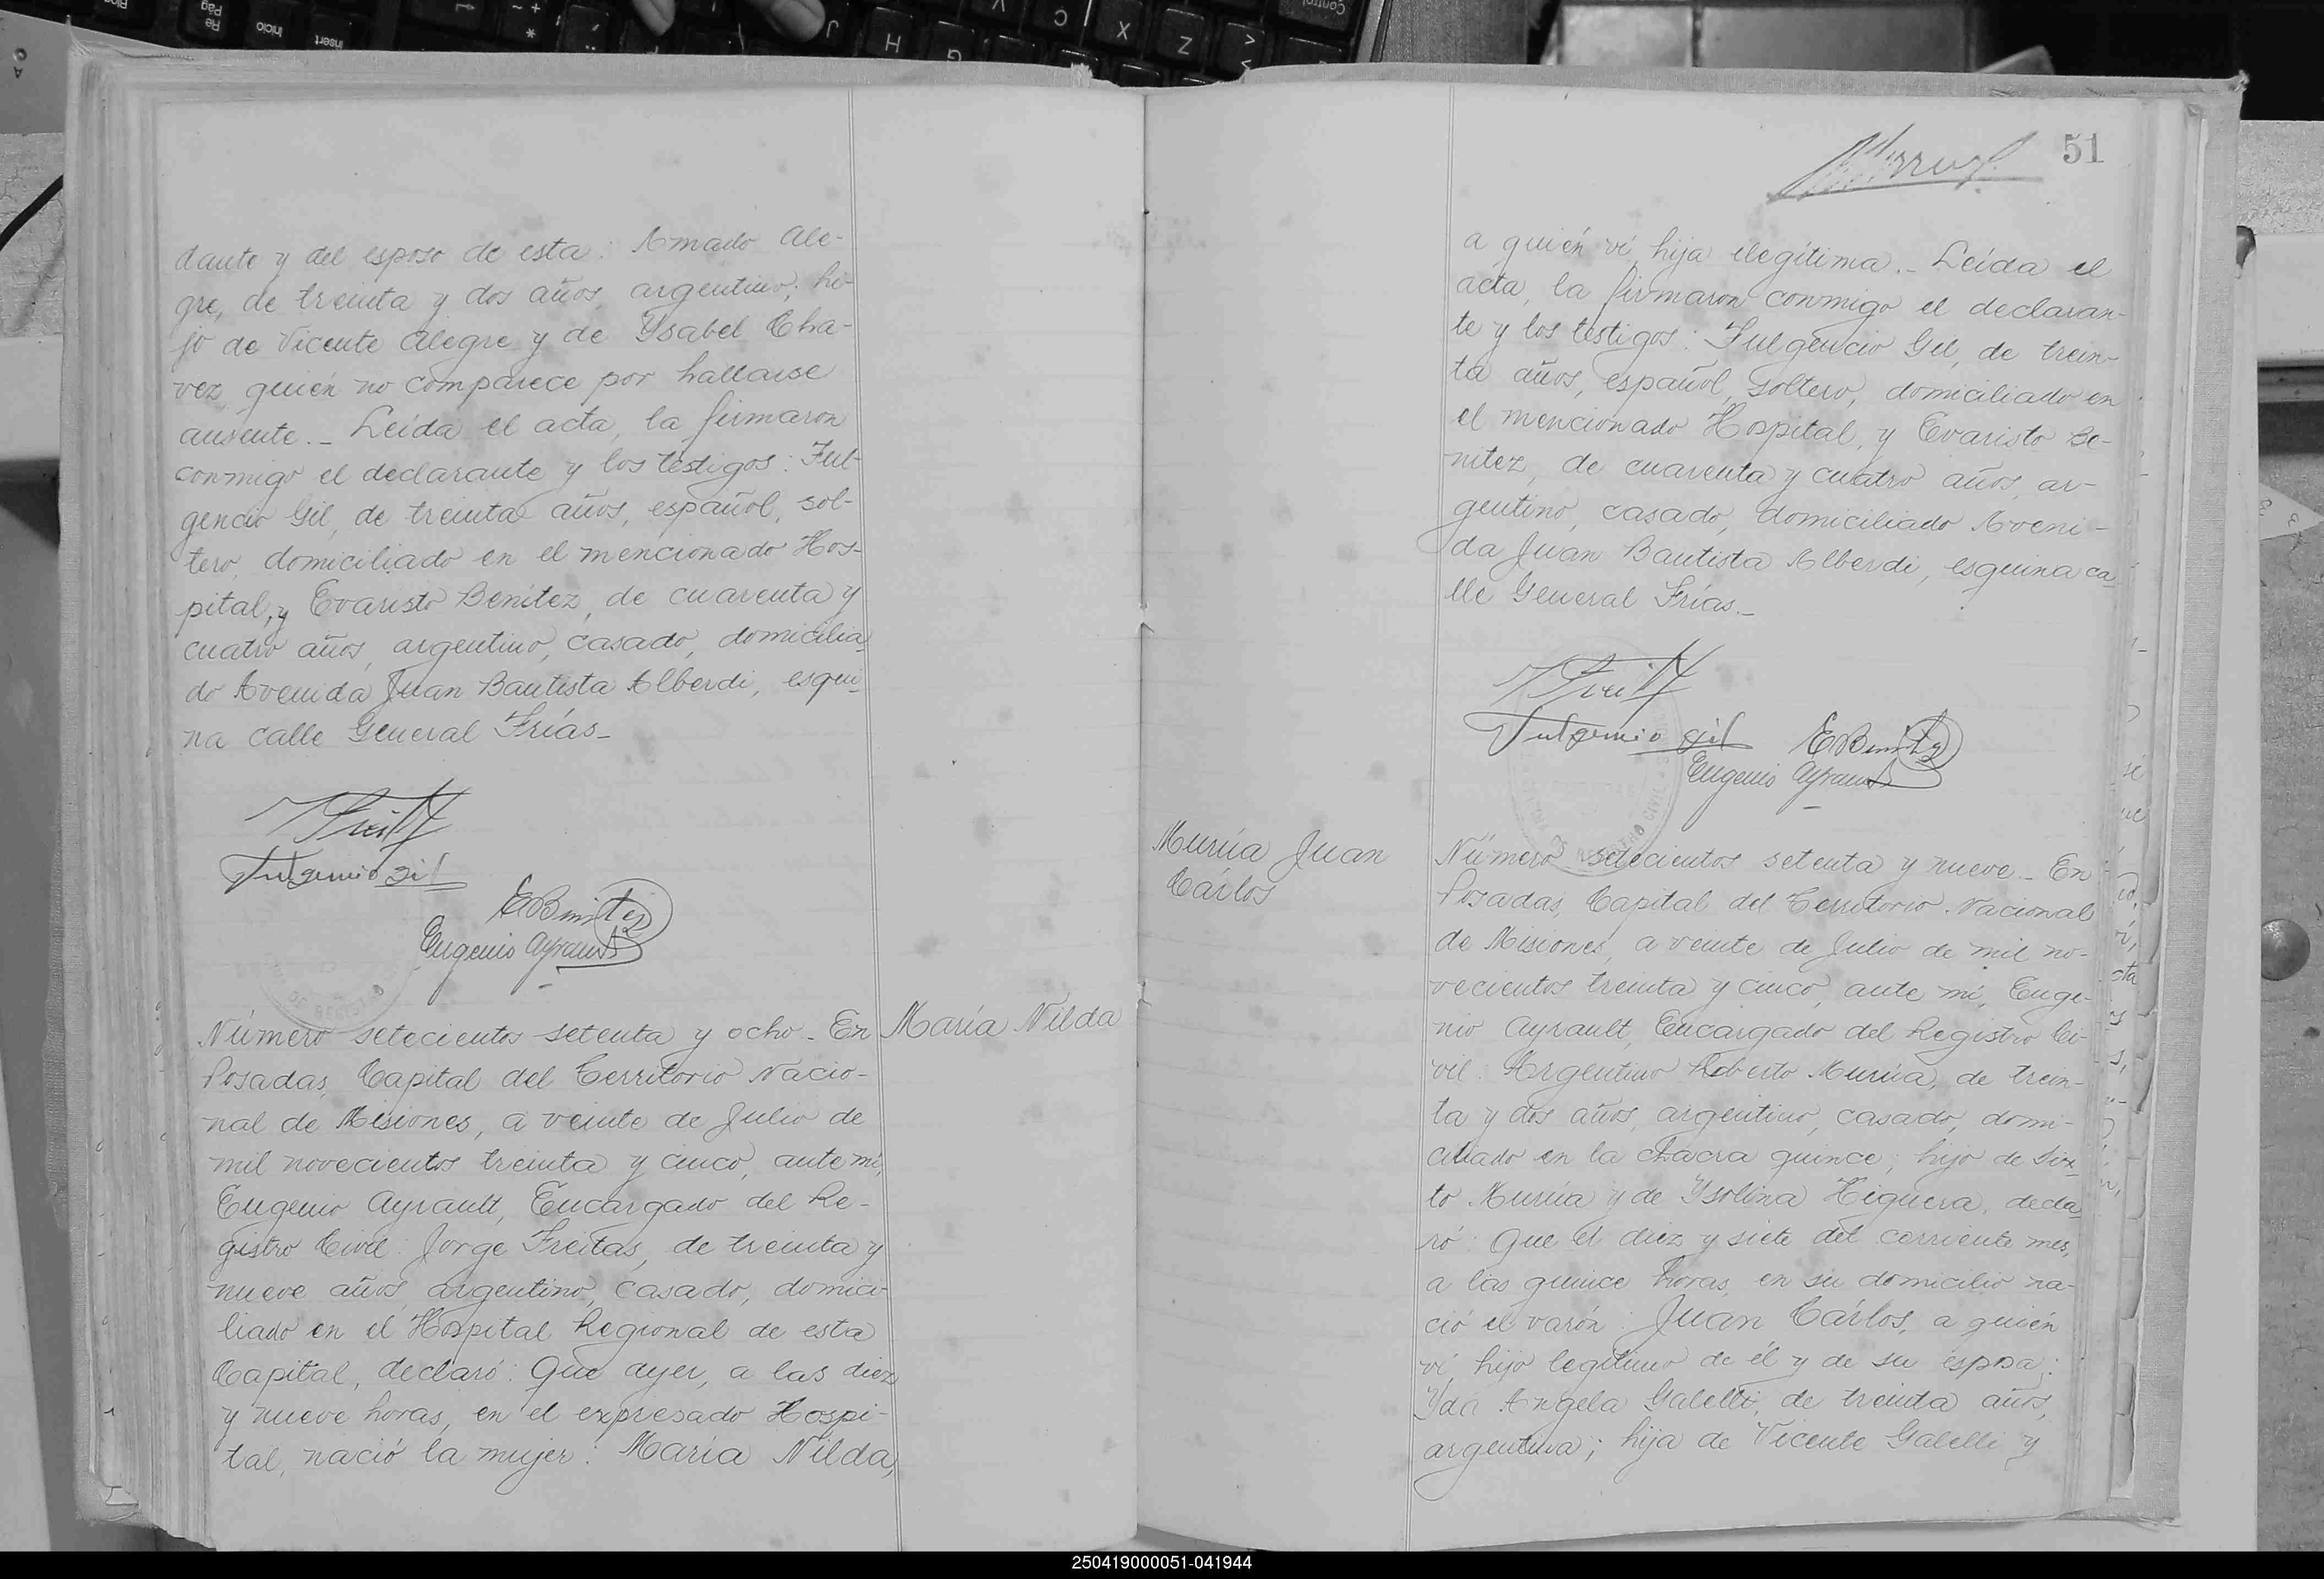 dante y del esposo de esta: Amado Ale-
gre, de treinta y dos años, argentino; hi-
jo de Vicente Alegre y de Ysabel Cha-
vez, quién no comparece por hallarse
ausente._ Leída el acta, la firmaron
conmigo el declarante y los testigos: Ful-
gencio Gil, de treinta años, español, sol-
tero, domiciliado en el mencionado Hos-
pital, y Evaristo Benitez, de cuarenta y
cuatro años, argentino, casado, domicilia-
do Avenida Juan Bautista Alberdi, esqui-
na calle General Frías_
Fulgencio Gil
EBenitez
Eugenio Ayrault
Número setecientos setenta y ocho_ En
Posadas, Capital del Territorio Nacio-
nal de Misiones, a veinte de Julio de
mil novecientos treinta y cinco, ante mí,
Eugenio Ayrault, Encargado del Re-
gistro Civil: Jorge Freitas, de treinta y
nueve años, argentino, casado, domici-
liado en el Hospital Regional de esta
Capital, declaró: Que ayer, a las diez
y nueve horas, en el expresado Hospi-
tal, nació la mujer: María Nilda,
María Nilda
51
a quién ví, hija ilegítima._ Leída el
acta, la firmaron conmigo el declaran-
te y los testigos: Fulgencio Gil, de trein-
ta años, español, soltero, domiciliado en
el mencionado Hospital, y Evaristo Be-
nitez, de cuarenta y cuatro años, ar-
gentino, casado, domiciliado Aveni-
da Juan Bautista Alberdi, esquina ca-
lle General Frías._
Fulgencio Gil EBenitez
Eugenio Ayrault
Murúa Juan
Cárlos
Número setecientos setenta y nueve_ En
Posadas, Capital del Territorio Nacional
de Misiones, a veinte de Julio de mil no-
vecientos treinta y cinco, ante mí, Euge-
nio Ayrault, Encargado del Registro Ci-
vil: Argentino Roberto Murúa, de trein-
ta y dos años, argentino, casado, domi-
ciliado en la chacra quince, hijo de Six-
to Murúa y de Ysolina Higuera, decla-
ró: Que el diez y siete del corriente mes,
a las quince horas, en su domicilio na-
ció el varón: Juan Cárlos, a quién
ví, hijo legítimo de él y de su esposa:
Yda Angela Galelli, de treinta años,
argentina; hija de Vicente Galelli y
250419000051-041944